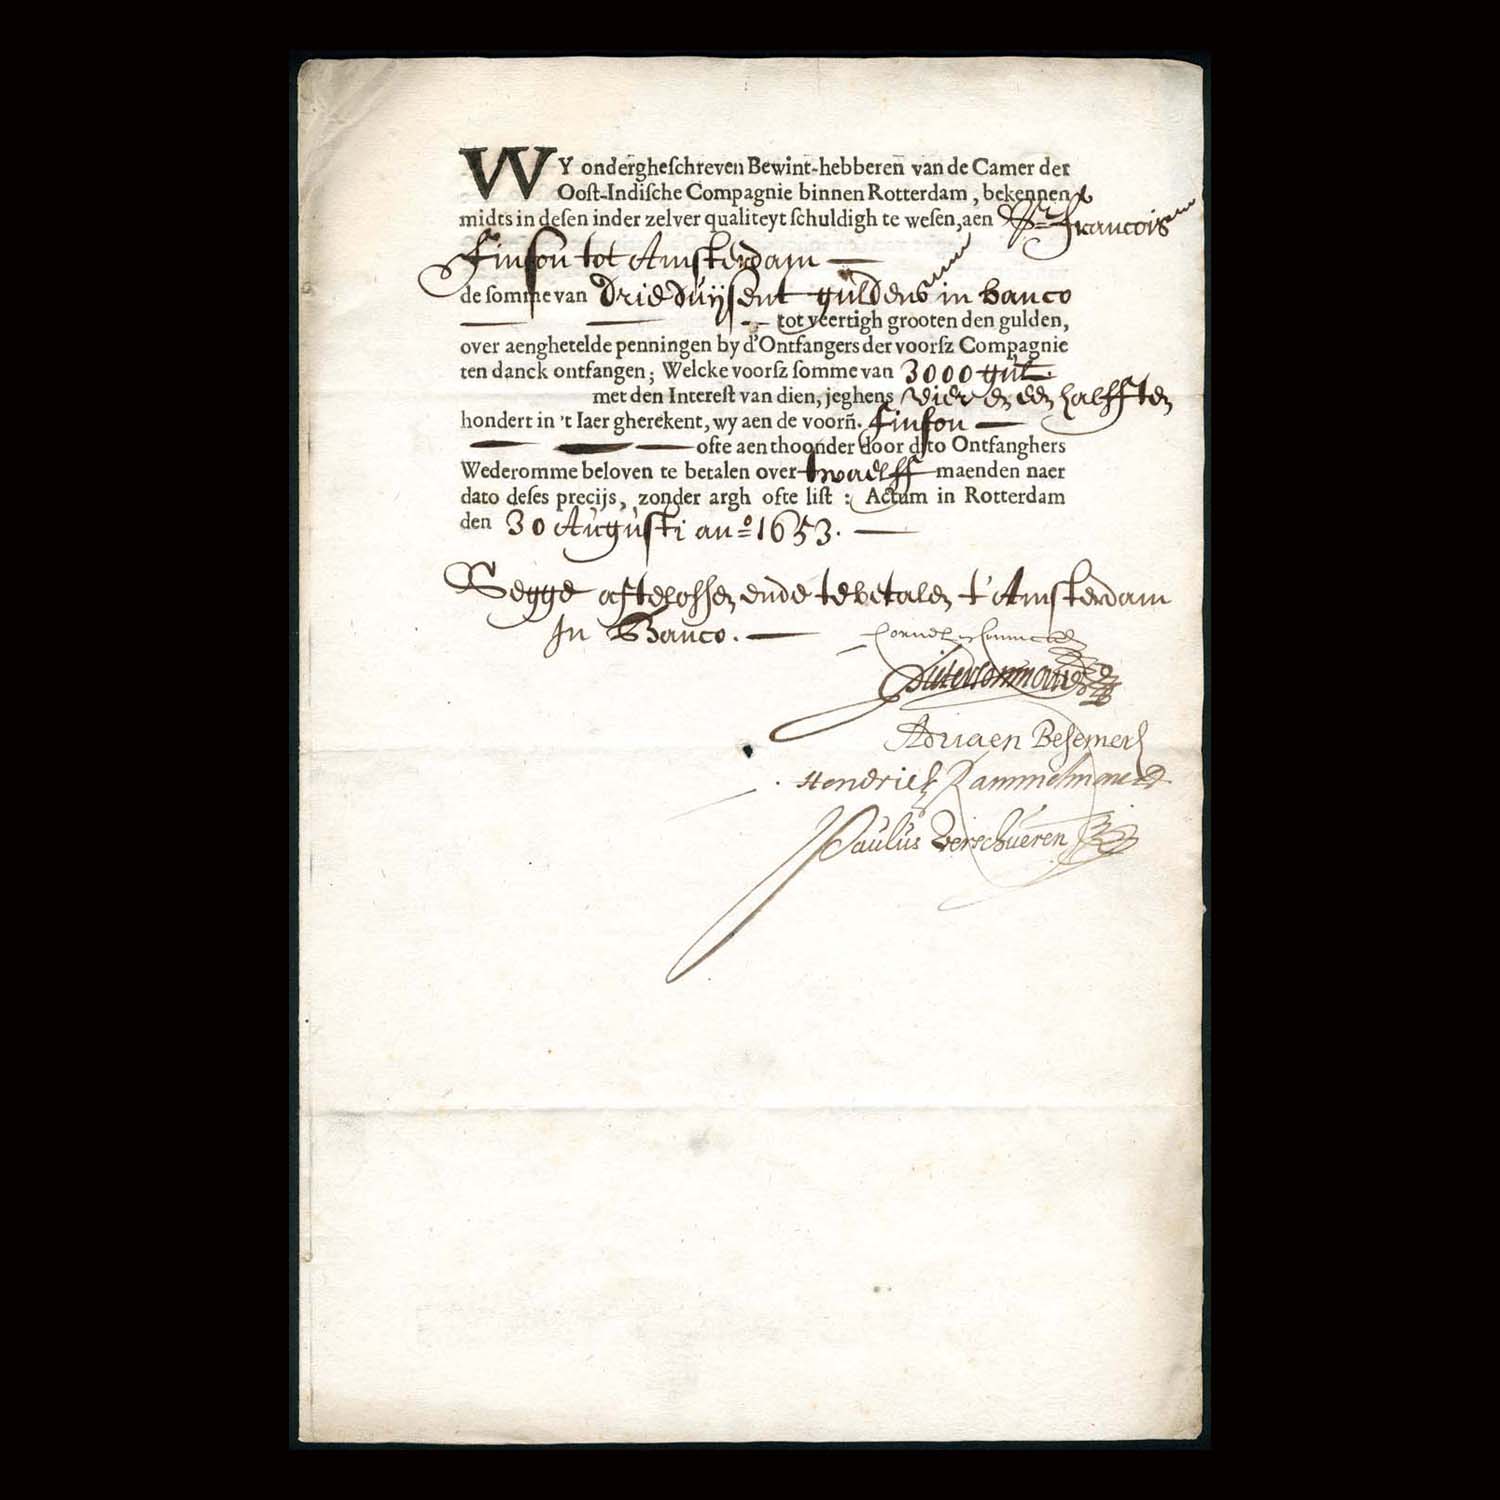 WY ondergheſchreven Bewint-hebberen̄ van de Camer der
Ooſt-Indiſche Compagnie binnen Rotterdam, bekennen
midts in deſen inder zelver qualiteyt ſchuldigh te weſen, aen Sr. Francois
Finſon tot Amsterdam —
de ſomme van Drie duijſent guldens in banco
— — — tot veertigh grooten den gulden,
over aenghetelde penningen by d'Ontfangers der voorſz Compagnie
ten danck ontfangen; Welcke voorſz ſomme van 3000 gul.
met den Intereſt van dien, jeghens vier en een halff ten
hondert in 't Iaer gherekent, wy aen de voorn̄. Finſon —
— — — ofte aen thoonder door dito Ontfanghers
Wederomme beloven te betalen over twaelff maenden naer
dato deſes precijs, zonder argh ofte liſt: Actum in Rotterdam
den 30 Augusti an.o 1653. —
Segge aftelossen ende te betalen t'Amsterdam
In Banco. —
Adriaen Besemer
Hendrick
Paulus Verschueren